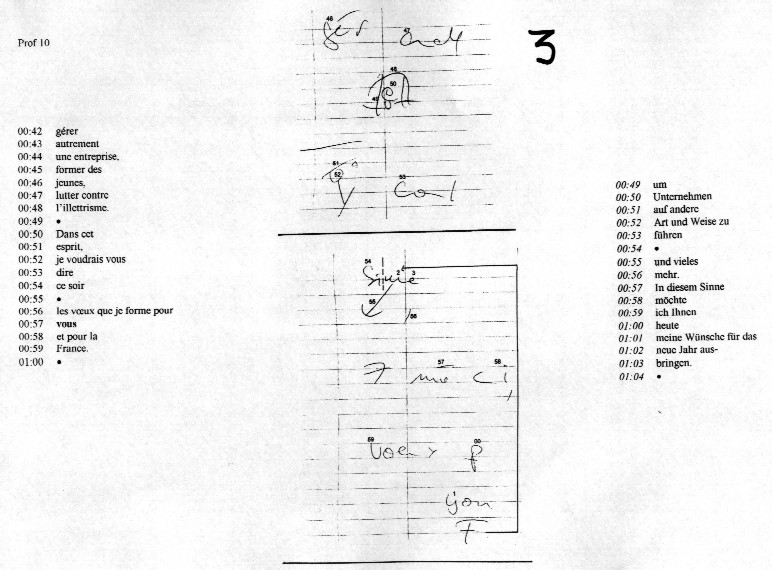 Prof 10
3
00:42 gérer
00:43 autrement
00:44 une entreprise,
00:45 former des
00:46 jeunes,
00:47 lutter contre
00:48 l'illettrisme.
00:49 •
00:50 Dans cet
00:51 esprit,
00:52 je voudrais vous
00:53 dire
00:54 ce soir
00:55 •
00:56 les vœux que je forme pour
00:57 vous
00:58 et pour la
00:59 France.
01:00 •
46 47
48
50
51
52 53
54 2 3
Sinne
55
56
57 58
59 00
00:49 um
00:50 Unternehmen
00:51 auf andere
00:52 Art und Weise zu
00:53 führen
00:54 •
00:55 und vieles
00:56 mehr.
00:57 In diesem Sinne
00:58 möchte
00:59 ich Ihnen
01:00 heute
01:01 meine Wünsche für das
01:02 neue Jahr aus-
01:03 bringen.
01:04 •